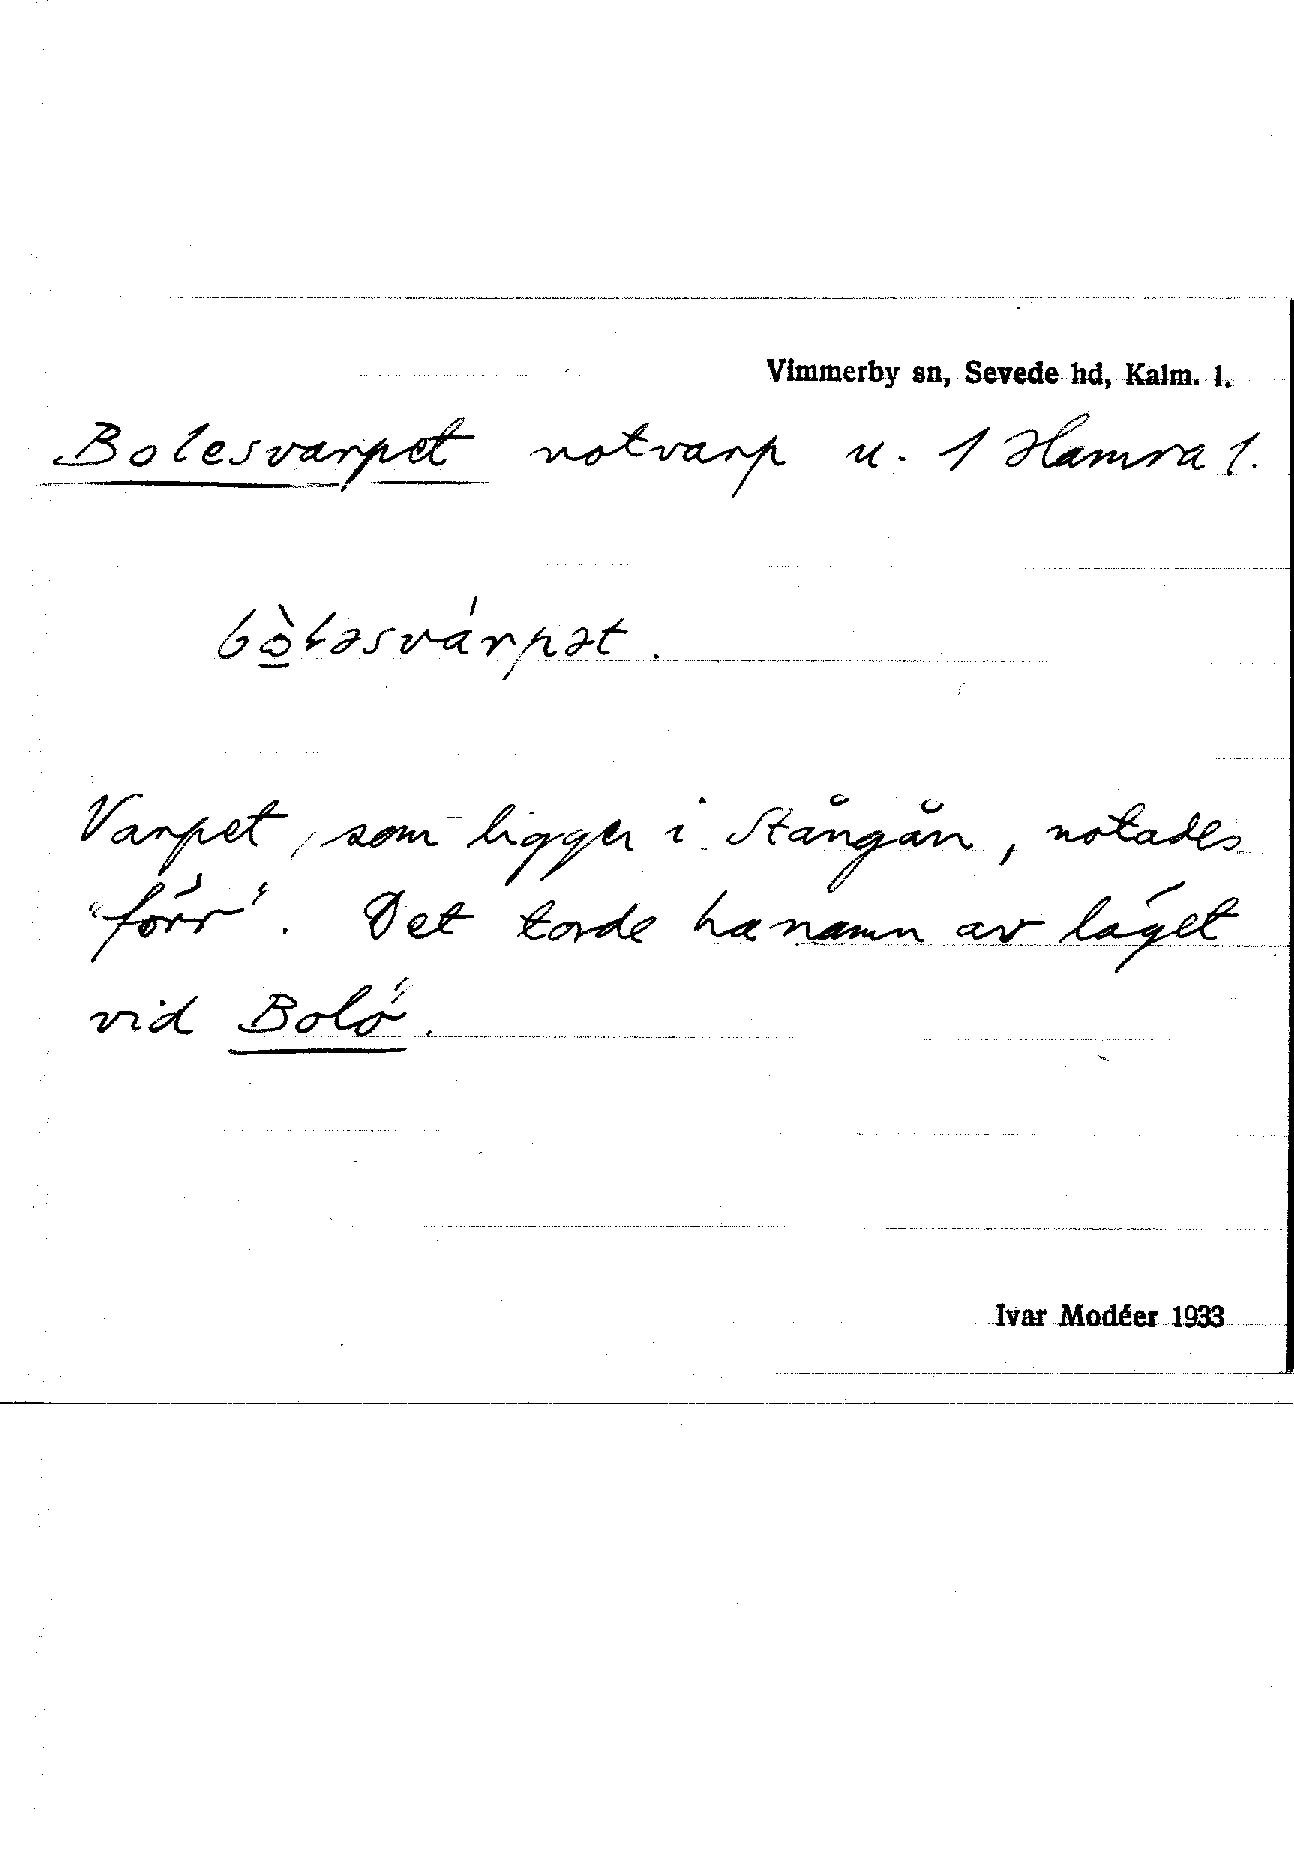 Vimmerby sn, Sevede hd, Kalm. l.
Bolesvarpet notvarp u. 1 Hamra 1.
bò̱ləsvárpət.
Varpet, som ligger i Stångån, notades
"förr". Det torde ha namn av läget
vid Bolö.
Ivar Modéer 1933